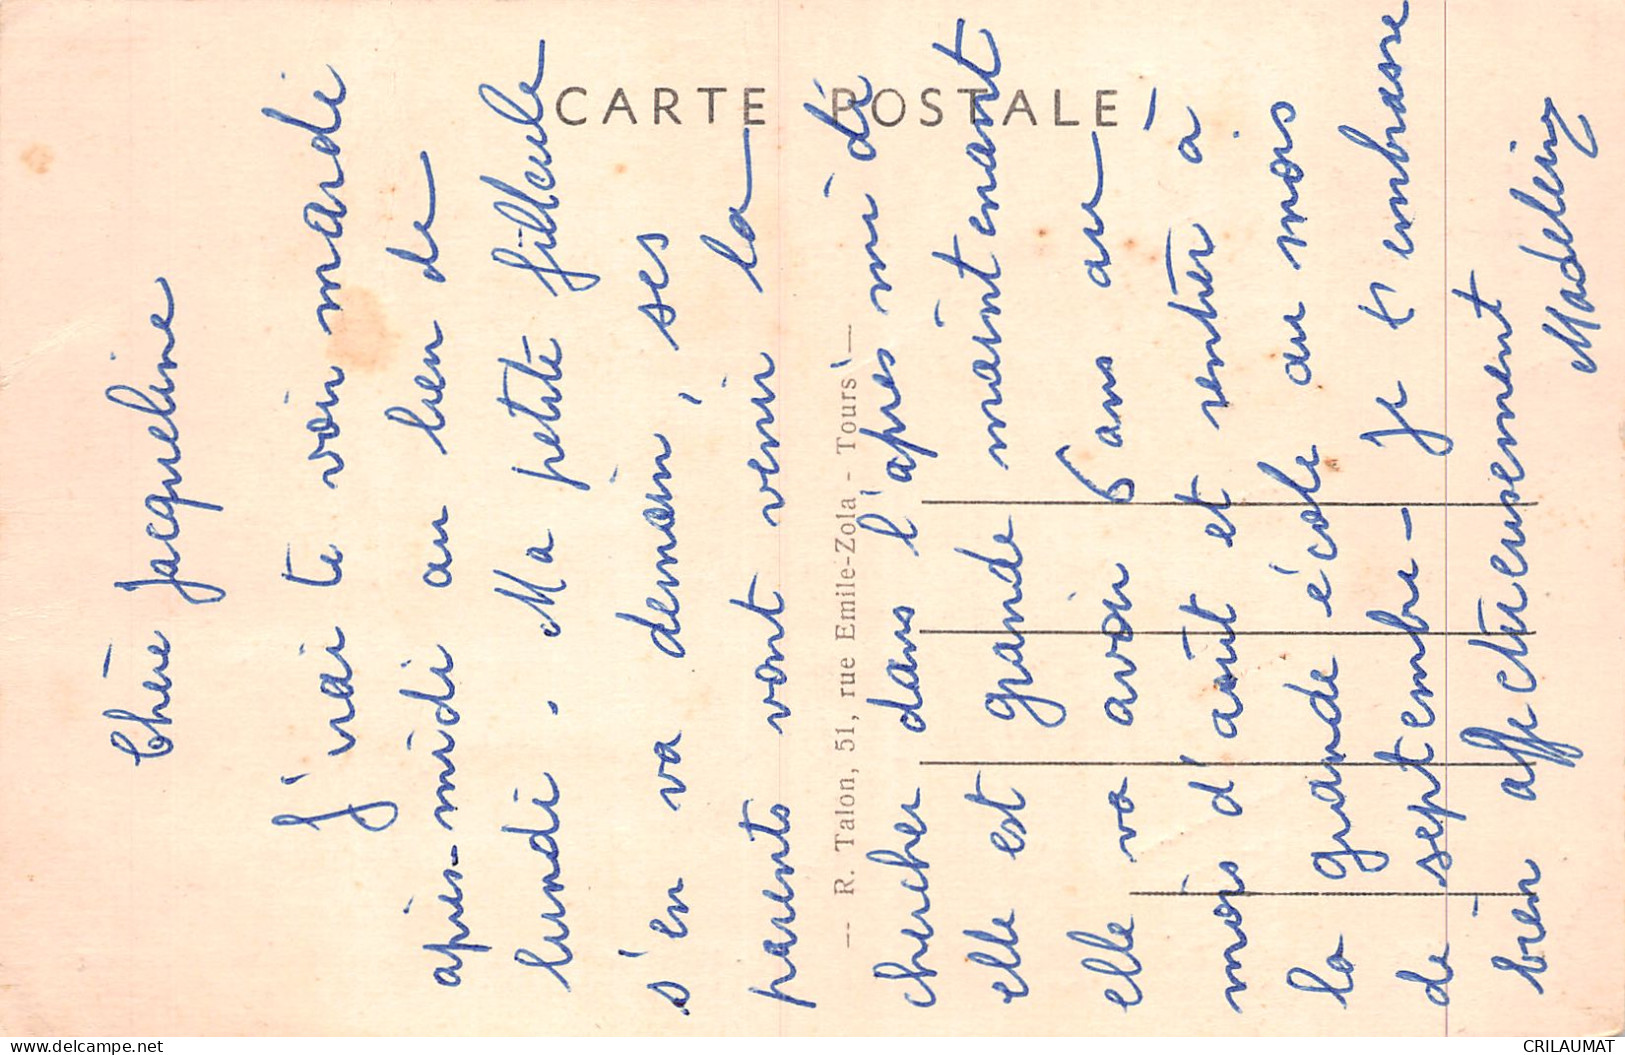 CARTE POSTALE
-- R. Talon, 51, rue Emile-Zola - Tours --
Chère Jacqueline
J'irai te voir mardi
après-midi au lieu de
lundi. Ma petite filleule
s'en va demain, ses
parents vont venir la
chercher dans l'après midi
elle est grande maintenant
elle va avoir 6 ans au
mois d'août et rentrer à
la grande école au mois
de septembre - Je t'embrasse
bien affectueusement
Madeleine
CRILAUMAT